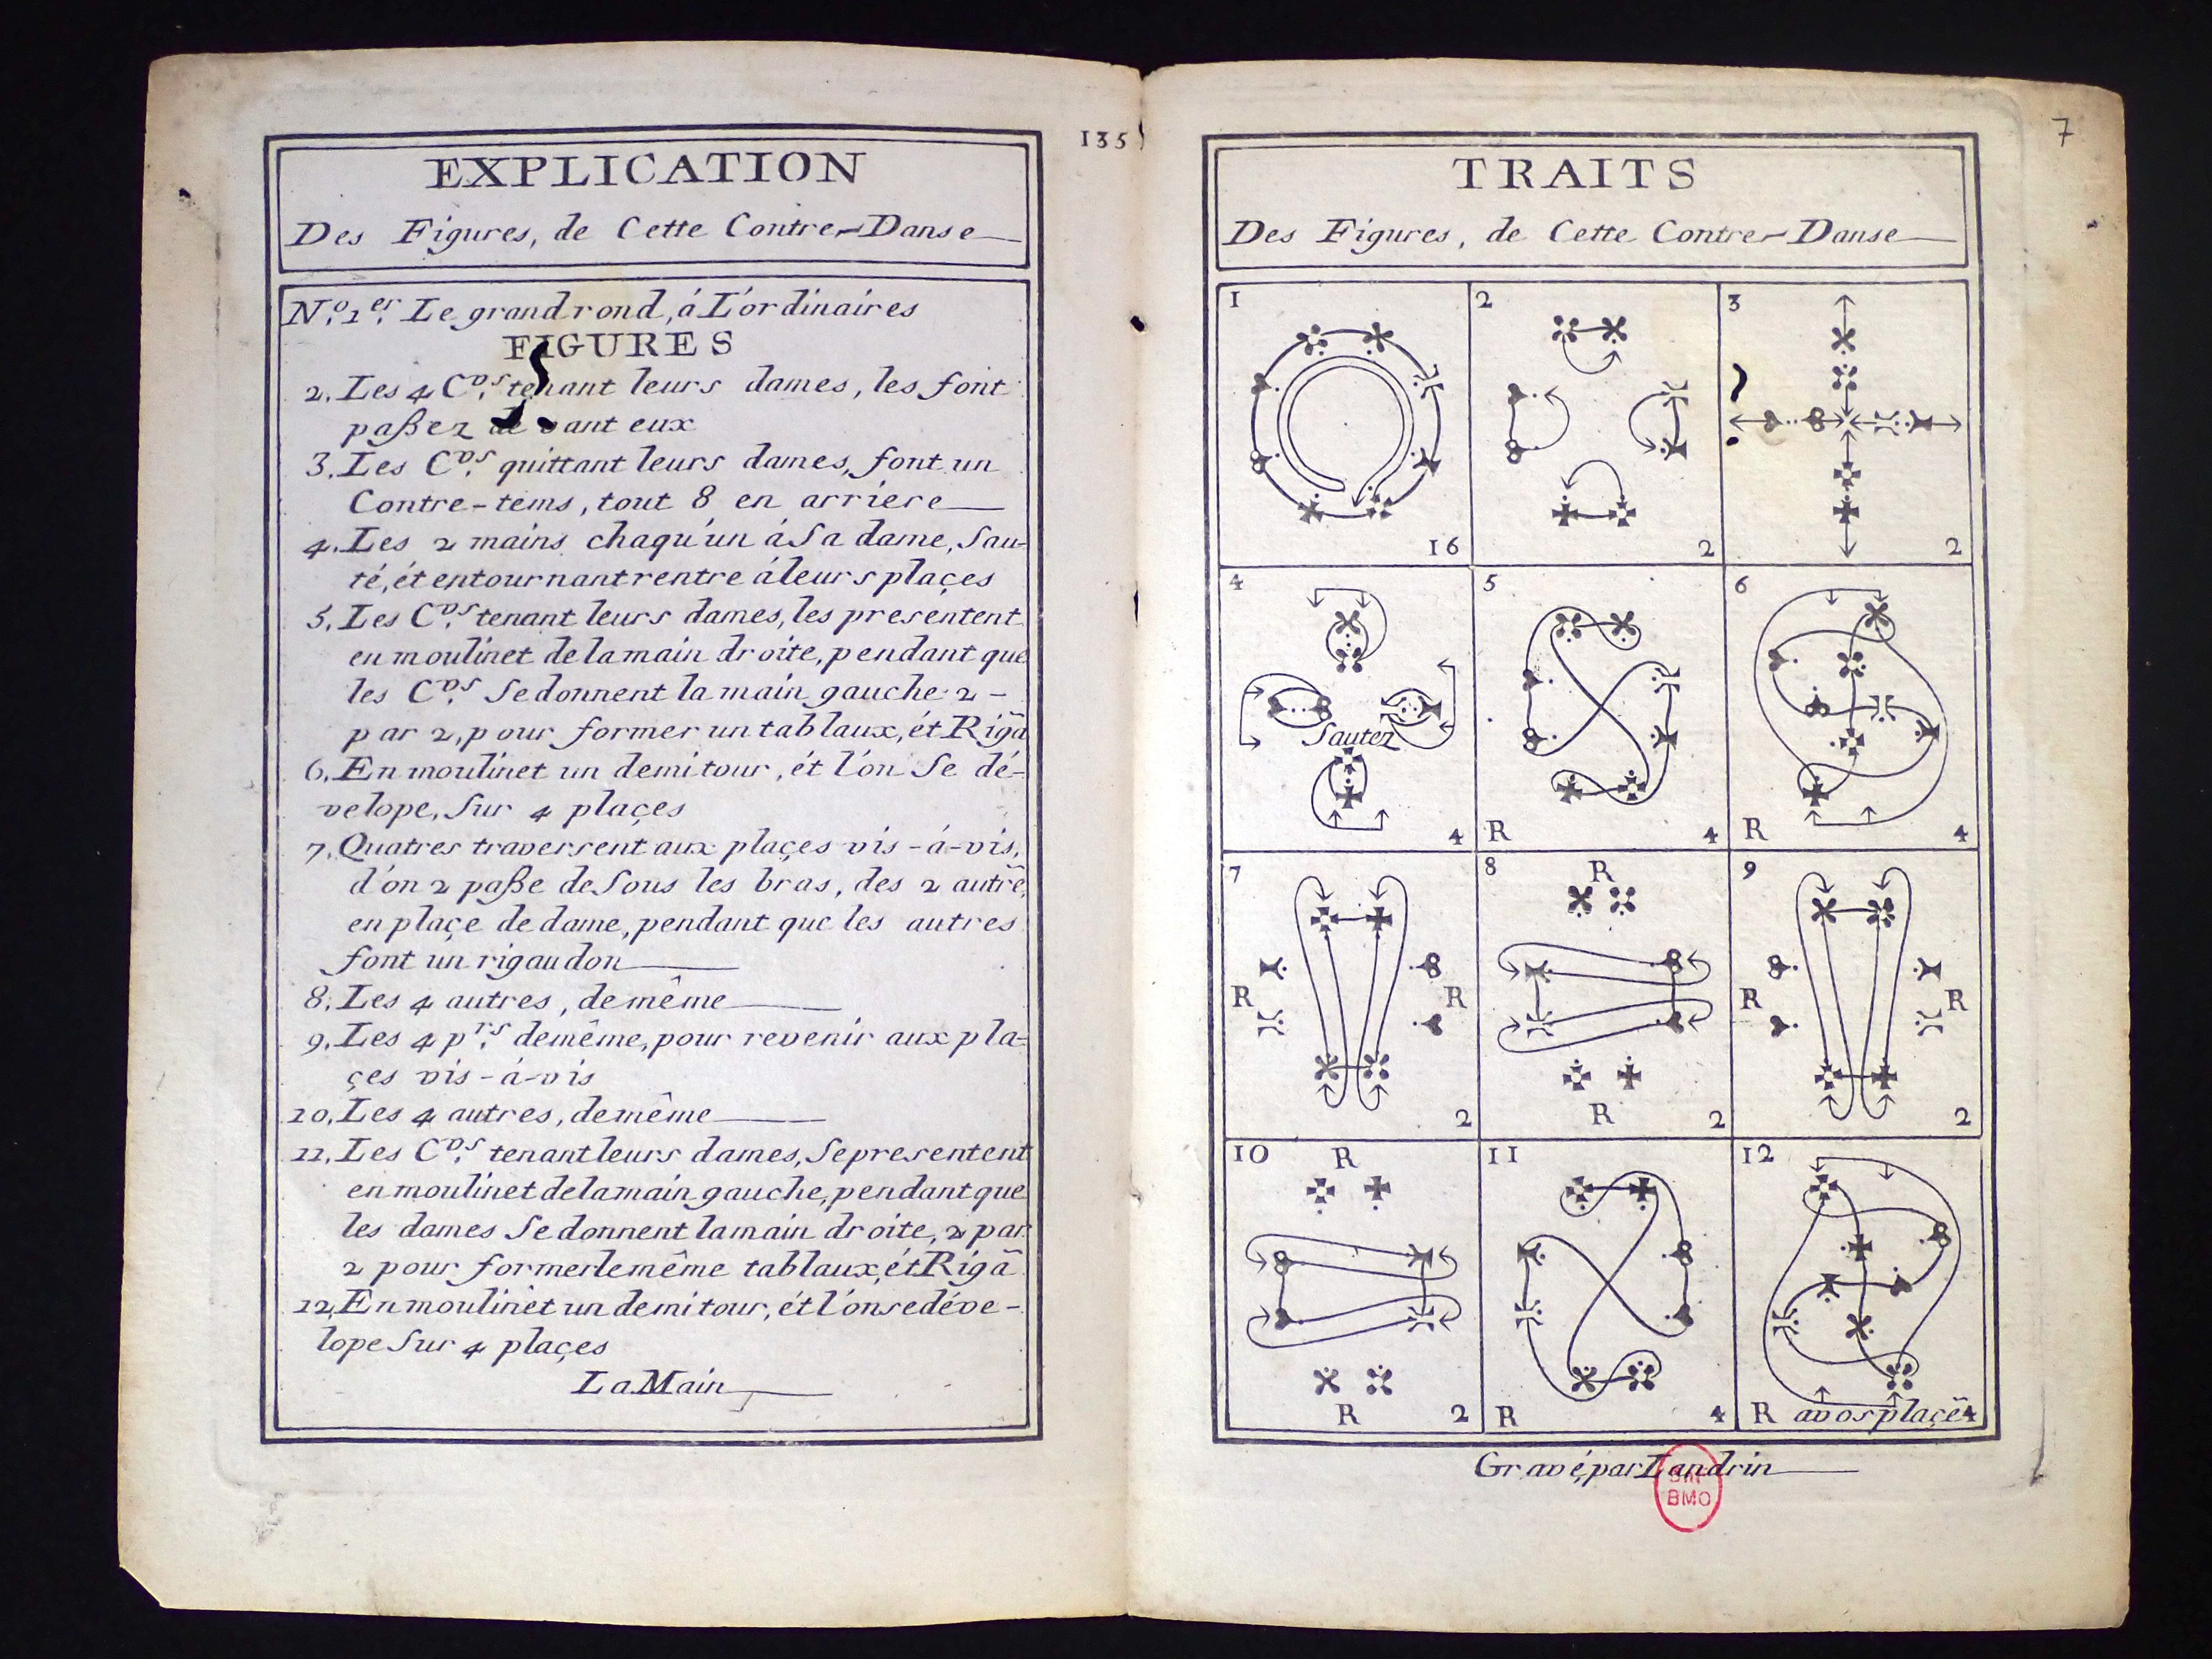 EXPLICATION
Des Figures, de Cette Contre-Danse
N.º 1.er Le grand rond, á L'ordinaires
FIGURES
2. Les 4 C.ds tenant leurs dames, les font
paßez de vant eux
3. Les C.ds quittant leurs dames, font un
Contre-tems, tout 8 en arriere
4. Les 2 mains chaqu'un á Sa dame, Sau-
té, ét entournant rentre á leurs plaçes
5. Les C.ds tenant leurs dames, les presentent
en moulinet de la main droite, pendant que
les C.ds Se donnent la main gauche 2 -
par 2, pour former un tablaux, ét Rigã
6. En moulinet un demi tour, ét l'ón Se dé-
velope, Sur 4 plaçes
7. Quatres traversent aux plaçes vis-á-vis,
d'ón 2 paße de Sous les bras, des 2 autrẽ,
en plaçe de dame, pendant que les autres
font un rigaudon
8. Les 4 autres, de même
9. Les 4 p.rs demême, pour revenir aux pla-
çes vis-á-vis
10. Les 4 autres, demême
11. Les C.ds tenant leurs dames, Se presentent
en moulinet de la main gauche, pendant que
les dames Se donnent la main droite, 2 par
2 pour former le même tablaux, ét Rigã
12. En moulinet un demi tour, ét l'ón se déve-
lope Sur 4 plaçes
La Main
135
7
TRAITS
Des Figures, de Cette Contre-Danse
1
16
2
2
3
2
4
Sautez
4
5
R
4
6
R
4
7
R
R
2
8
R
R
2
9
R
R
2
10
R
R
2
11
R
4
12
R avos plaçẽ 4
Gravé, par Landrin
BMO